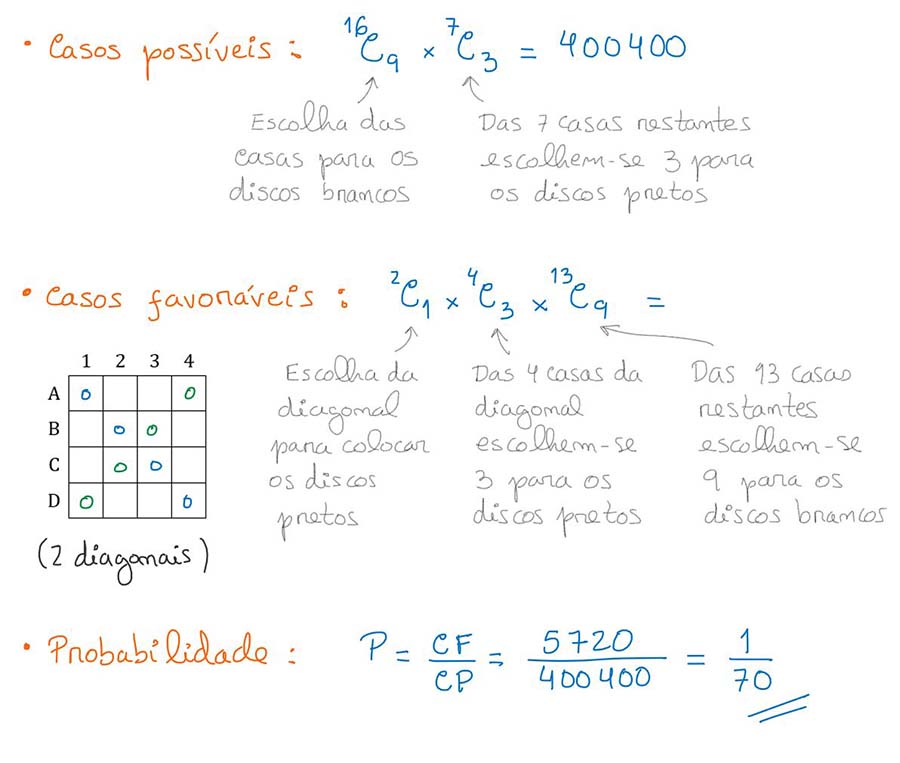 • Casos possíveis : ¹⁶C₉ × ⁷C₃ = 400400
Escolha das
casas para os
discos brancos
Das 7 casas restantes
escolhem-se 3 para
os discos pretos
• Casos favoráveis : ²C₁ × ⁴C₃ × ¹³C₉ =
1 2 3 4
A O O
B O O
C O O
D O O
(2 diagonais)
Escolha da
diagonal
para colocar
os discos
pretos
Das 4 casas da
diagonal
escolhem-se
3 para os
discos pretos
Das 13 casas
restantes
escolhem-se
9 para os
discos brancos
• Probabilidade : P = CF/CP = 5720/400400 = 1/70